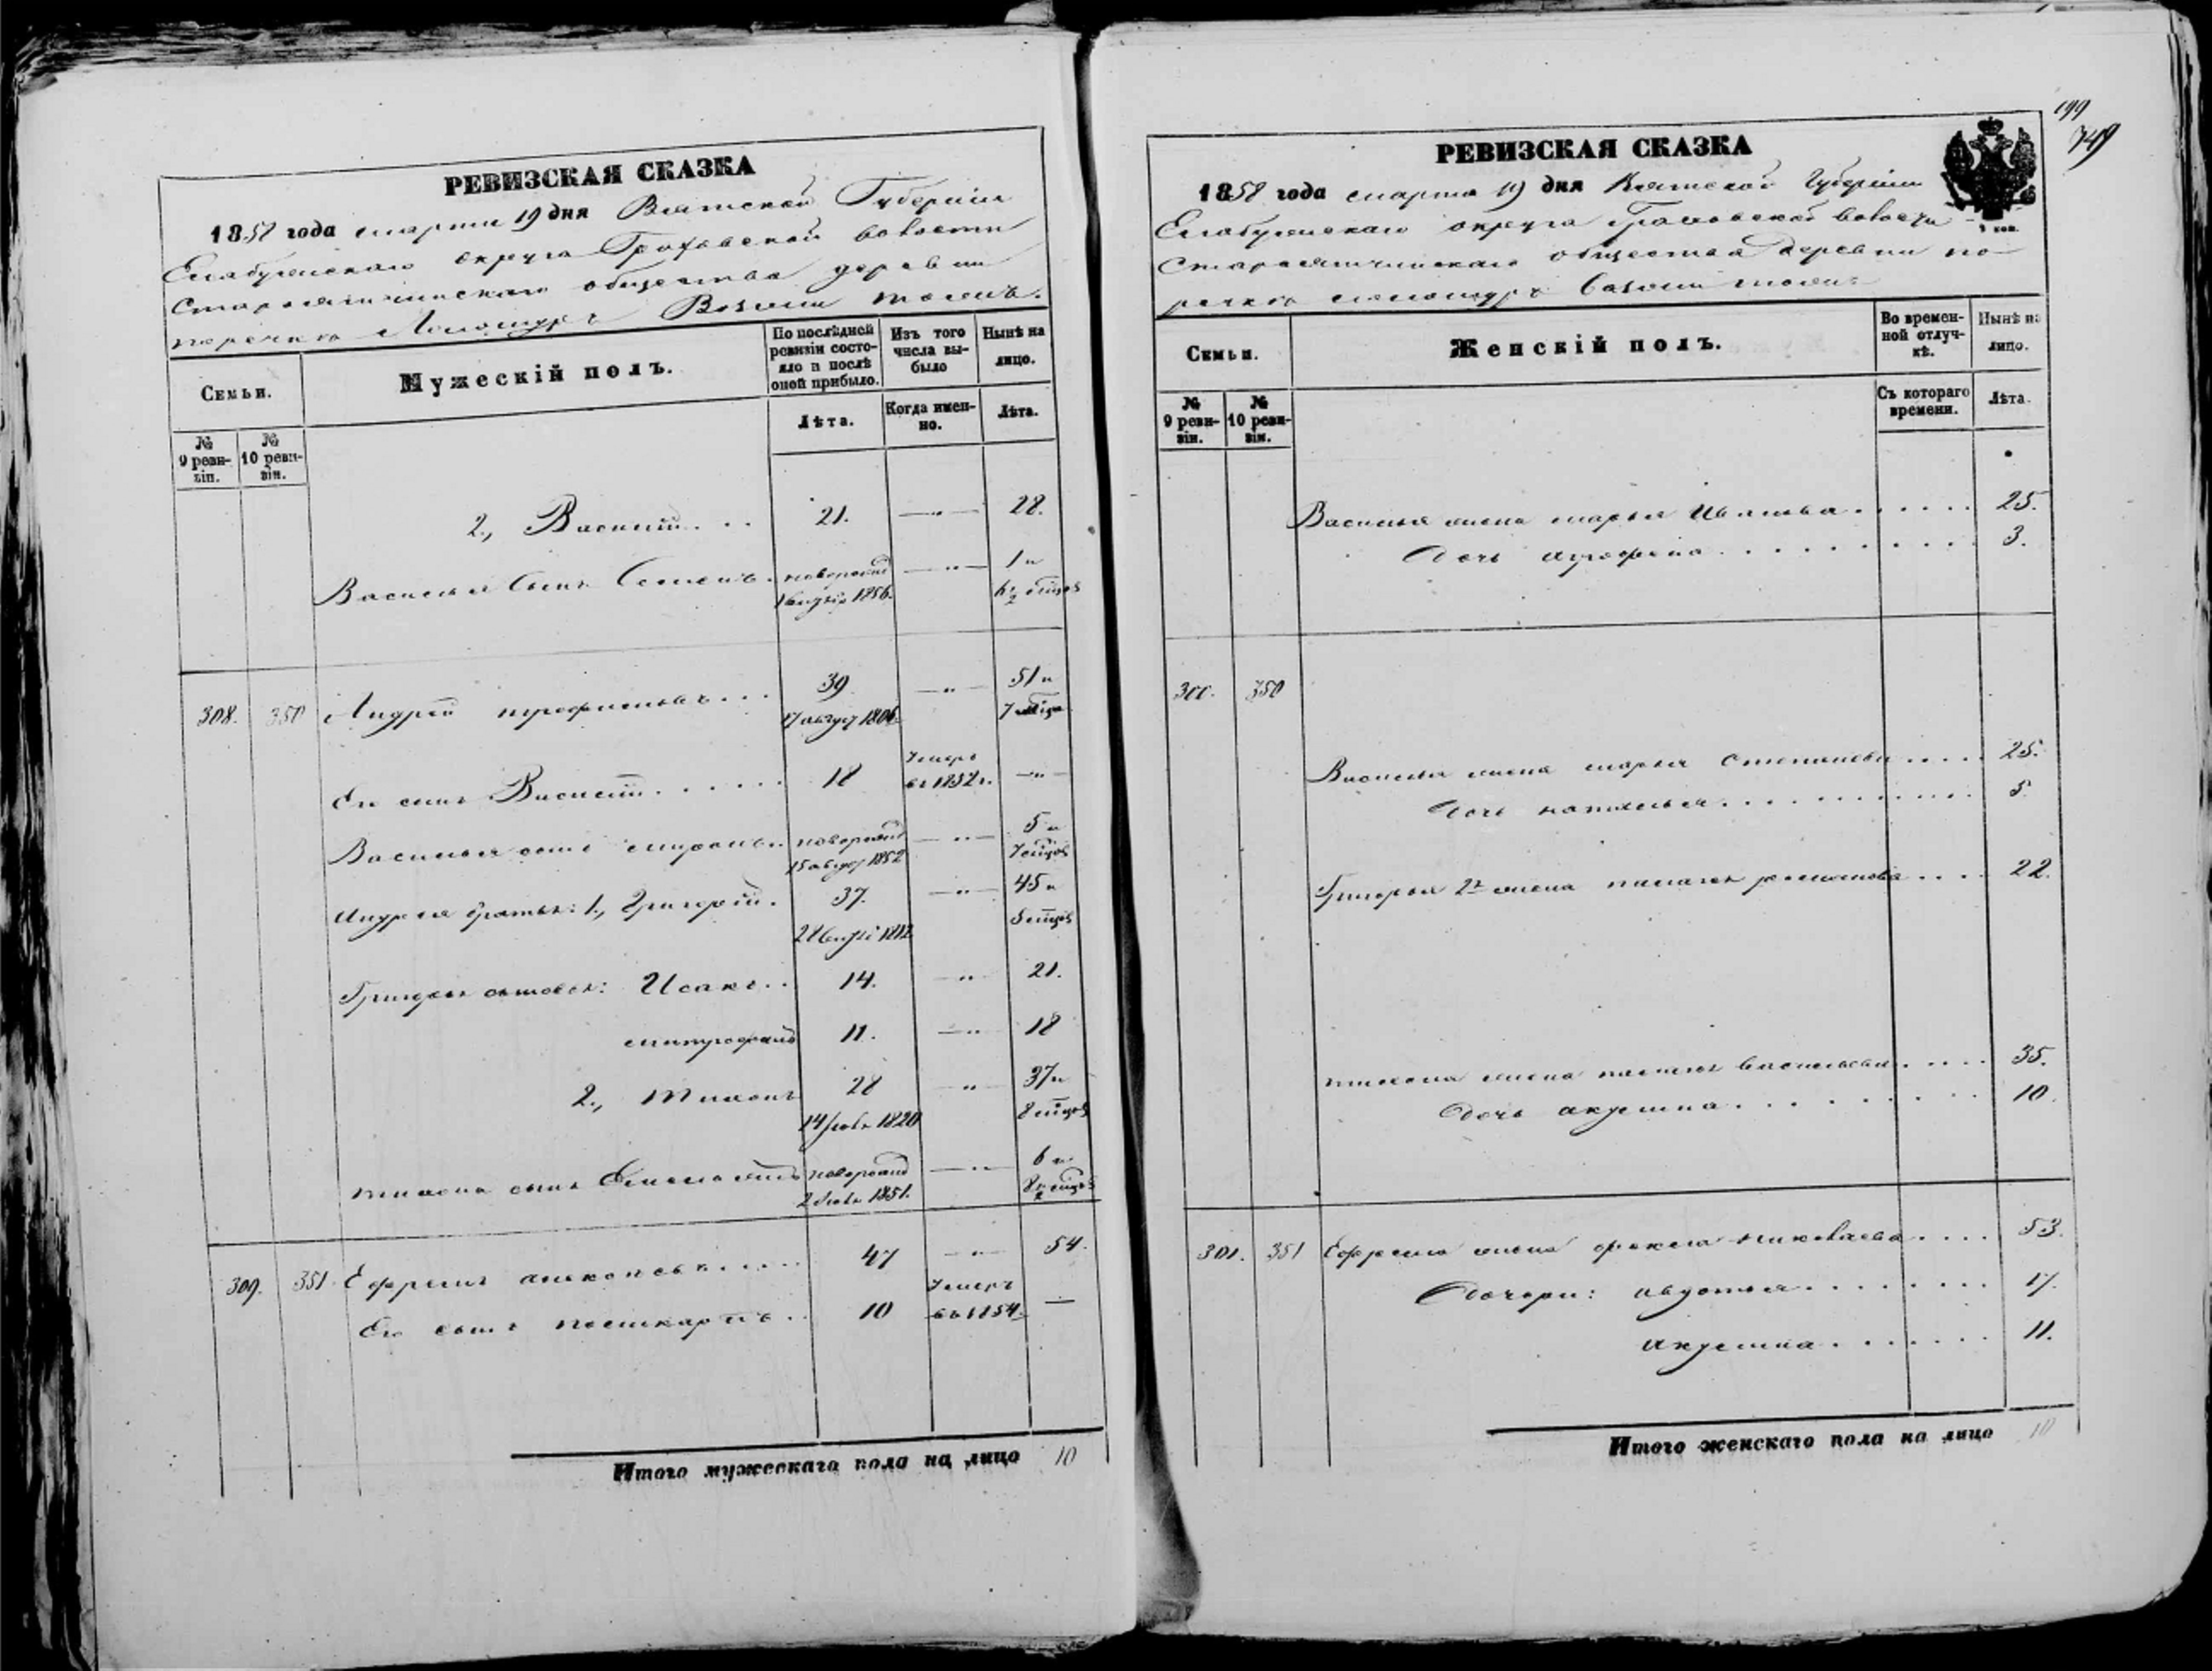 РЕВИЗСКАЯ СКАЗКА
1858 года марта 19 дня Вятской Губернии
Елабужского округа Граховской волости
общества деревни
по речке Возжи тожъ.
Семьи.
Мужескій полъ.
По послѣдней ревизіи состояло и послѣ оной прибыло.
Изъ того числа выбыло
Нынѣ на лицо.
Лѣта.
Когда именно.
Лѣта.
№ 9 ревизіи.
№ 10 ревизіи.
2., Василій . . . 21. —„— 28.
Василья сынъ Семенъ . новорожд —„— 1 и
1856. 6 1/2 мцовъ
308. 350 Андрей Трофимовъ . . . 39 —„— 51 и
17 август 1806. 7 мцов
Его сынъ Василій . . . . . . 18 Умеръ въ 1852 г. —„—
Василья сынъ Миронъ . . новорожд —„— 5 и
15 август 1852 7 мцовъ
Андрея братья: 1., Григорій . 37. —„— 45 и
28 1812 мцовъ
Григорья сыновья: Исакъ . . 14. —„— 21.
Митрофанъ 11. —„— 18
2., Тихонъ 28 —„— 37 и
14 1820 8 мцовъ
Тихона сынъ новорожд —„— 6 и
1851. 8 1/2 мцовъ
309. 351 Ефремъ . . . . . 47 —„— 54.
Его сынъ . . 10 Умеръ въ 1854 —
Итого мужескаго пола на лицо 10
199
749
РЕВИЗСКАЯ СКАЗКА
1858 года марта 19 дня Вятской Губерніи
Елабужскаго округа Граховской волости
общества деревни по
речке тожъ
Семьи.
Женскій полъ.
Во временной отлучкѣ.
Нынѣ на лицо.
№ 9 ревизіи.
№ 10 ревизіи.
Съ котораго времени.
Лѣта.
Василья жена Марья Иванова . . . . . . 25.
Дочь Агрофена . . . . . . . . . . 3.
300. 350
Василья жена Марья Степанова . . . . 25.
Дочь Наталья . . . . . . . . . . . . 5.
Григорья 2я жена Романова . . . . 22.
Тихона жена Васильева . . . . . 35.
Дочь Акулина . . . . . . . . . . 10.
301. 351 Ефрема жена Фекла Николаева . . . . 53.
Дочери: Авдотья . . . . . . . . 17.
Акулина . . . . . . . 11.
Итого женскаго пола на лицо 10